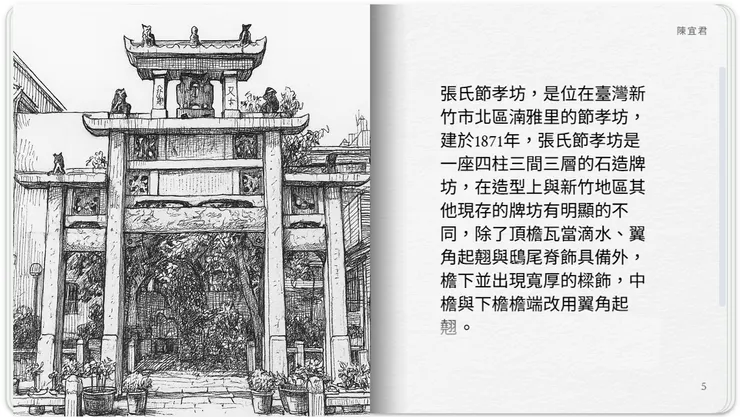 陳宜君
張氏節孝坊，是位在臺灣新
竹市北區湳雅里的節孝坊，
建於1871年，張氏節孝坊是
一座四柱三間三層的石造牌
坊，在造型上與新竹地區其
他現存的牌坊有明顯的不
同，除了頂檐瓦當滴水、翼
角起翹與鴟尾脊飾具備外，
檐下並出現寬厚的樑飾，中
檐與下檐檐端改用翼角起
翹。
5